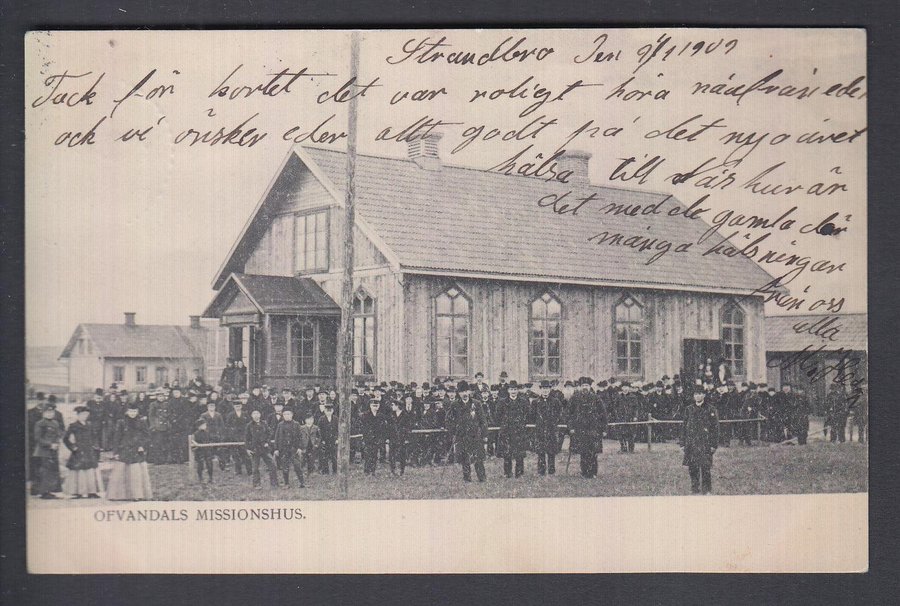 Strandbro Den 9/1 1902
Tack för kortet det var roligt höra nåufrån eder
och vi önsker eder allt godt på det nya året
hälsa till Lars hur är
det med de gamla där
många hälsningar
från oss
alla
OFVANDALS MISSIONSHUS.